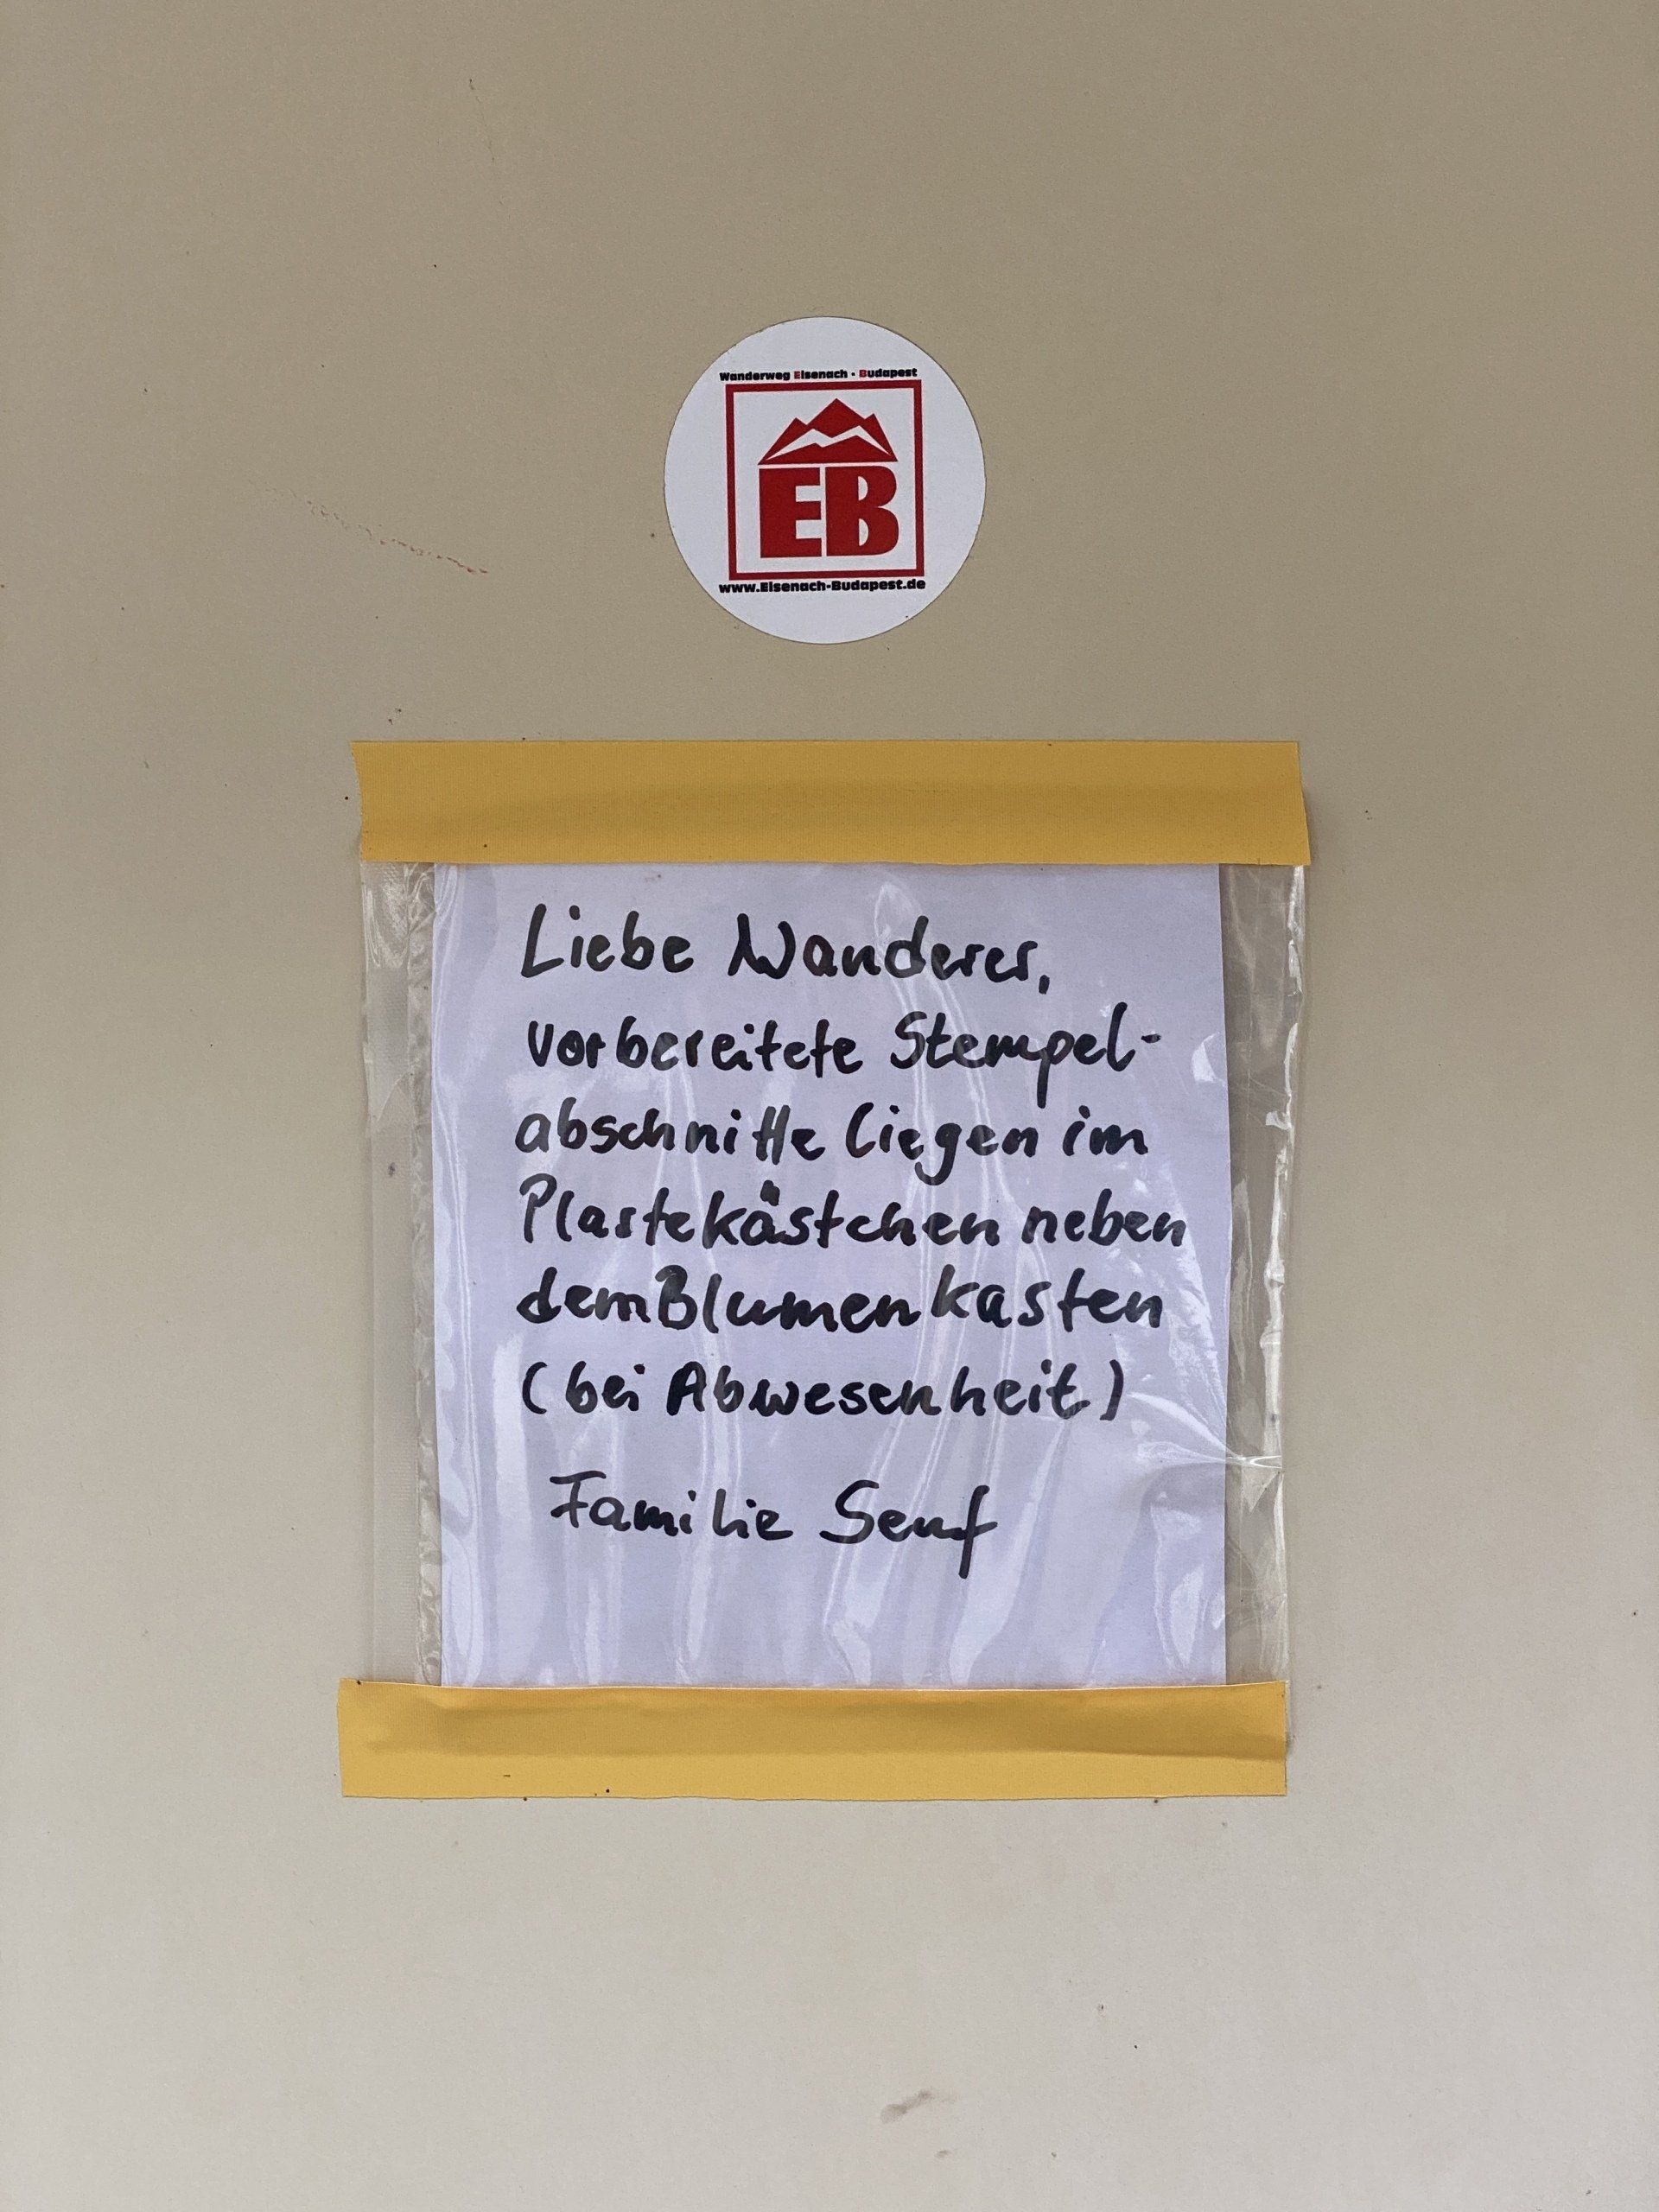 Wanderweg Eisenach - Budapest
EB
www.Eisenach-Budapest.de
Liebe Wanderer,
vorbereitete Stempel-
abschnitte liegen im
Plastekästchen neben
dem Blumenkasten
(bei Abwesenheit)
Familie Senf